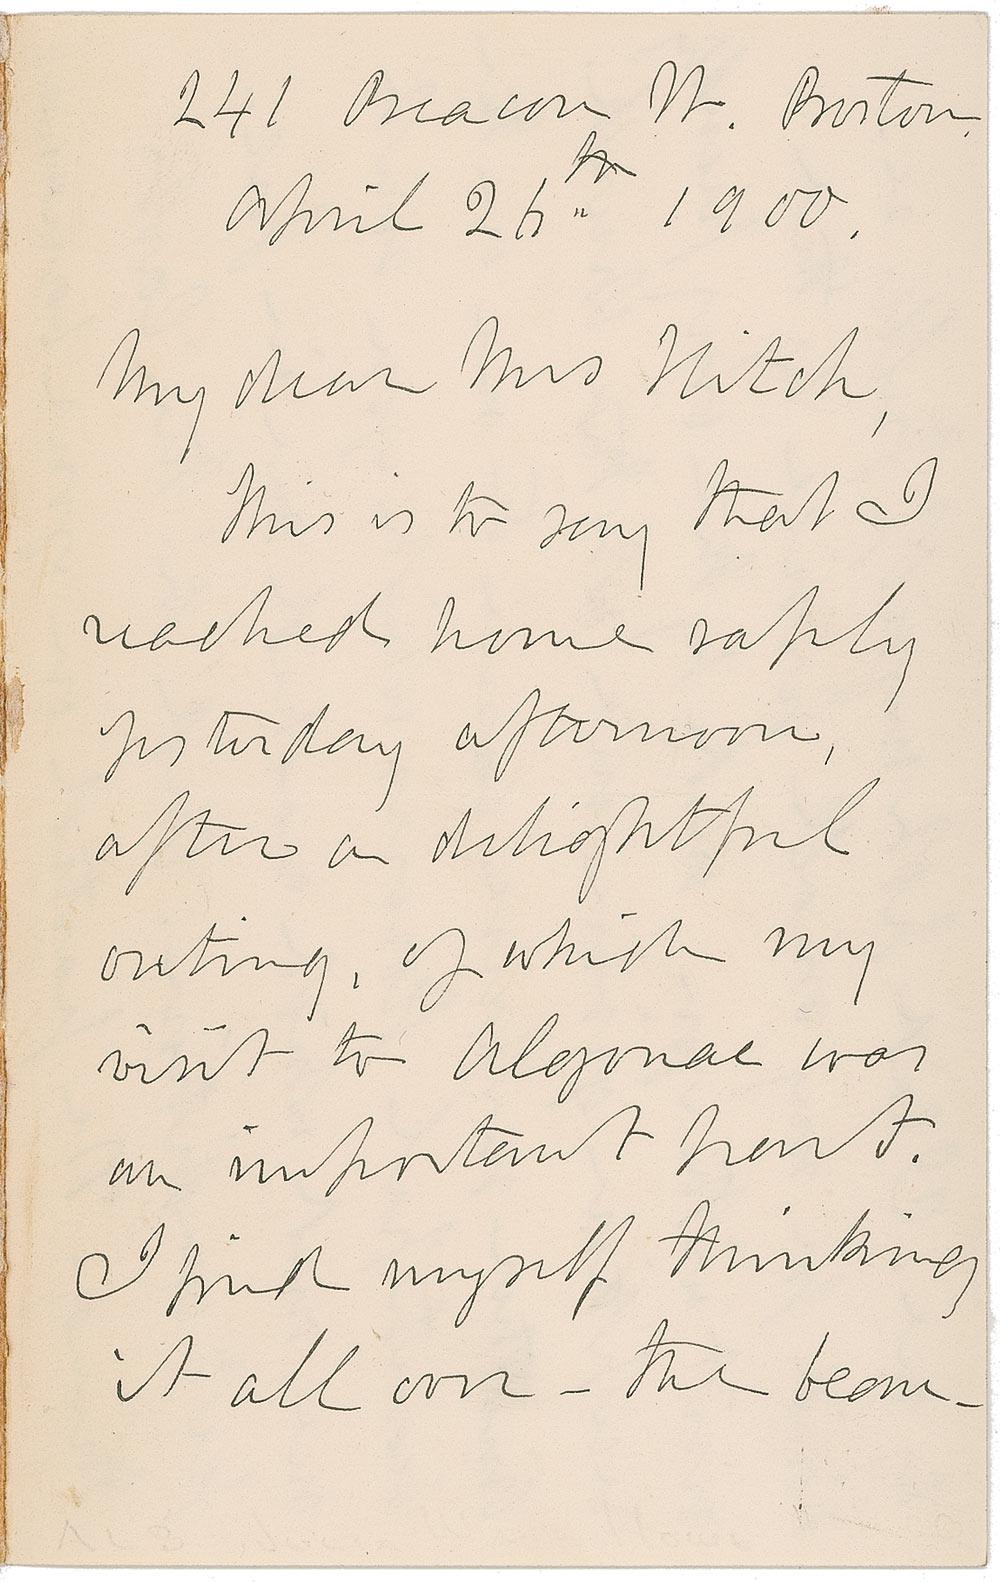 241 Beacon St. Boston.
April 26th 1900.
My dear Mrs Hitch,
This is to say that I
reached home safely
yesterday afternoon,
after a delightful
outing, of which my
visit to Algonac was
an important part.
I find myself thinking
it all over – the beau-